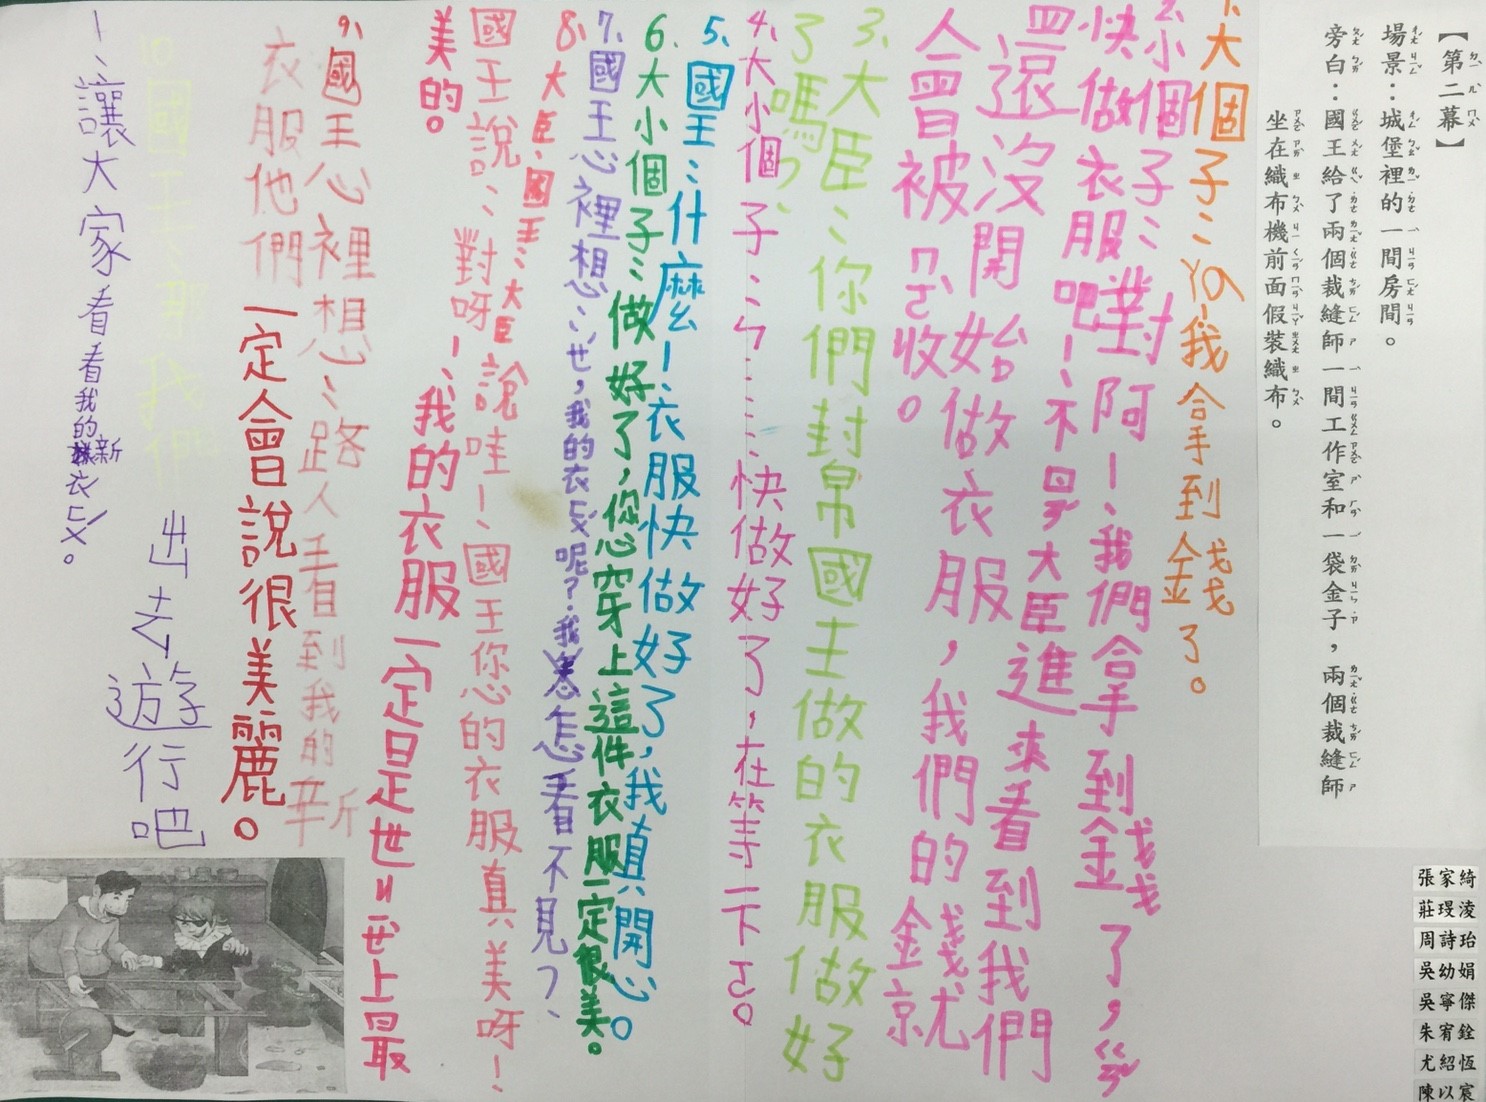 【第二幕】
場景：城堡裡的一間房間。
旁白：國王給了兩個裁縫師一間工作室和一袋金子，兩個裁縫師
坐在織布機前面假裝織布。
大個子：ㄚㄚ！我拿到金錢了。
2、小個子：對阿！我們拿到金錢了，
快做衣服吧！不是大臣進來看到我們
還沒開始做衣服，我們的錢就
會被ㄇㄛˋ收。
3、大臣：你們封帛國王做的衣服做好
了嗎？
4、大小個子：ㄣ……快做好了，在等一下ㄛ。
5、國王：什麼！衣服快做好了，我真開心。
6、大小個子：做好了，您穿上這件衣服一定很美。
7、國王心裡想：ㄝ，我的衣ㄈㄨˊ呢？我怎看不見？
8、大臣、國王：大臣說哇！國王您的衣服真美呀！
國王說：對呀！我的衣服一定是世ㄐㄧㄝˋ上最
美的。
9、國王心裡想：路人看到我的新
衣服他們一定會說很美麗。
10國王：那我們
出去遊行吧
！讓大家看看我的新衣ㄈㄨˊ。
張家綺
莊琝淩
周詩珆
吳幼娟
吳寧傑
朱宥銓
尤紹恆
陳以宸